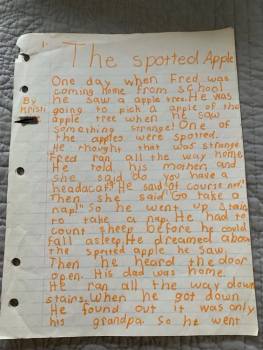 The spotted Apple
By Kristi
One day when Fred was
coming home from school
he saw a apple tree. He was
going to pick a apple of the
apple tree when he saw
something strange! One of
the apples were spotted.
He thought that was strange
Fred ran all the way home
He told his mother and
she said Do you have a
headacae? He said "Of course not."
Then she said "Go take a
nap!" So he went up stairs
to take a nap. He had to
count sheep before he could
fall asleep. He dreamed about
the spotted apple he saw.
Then he heard the door
open. His dad was home.
He ran all the way down
stairs. When he got down
He found out it was only
his grandpa. So he went